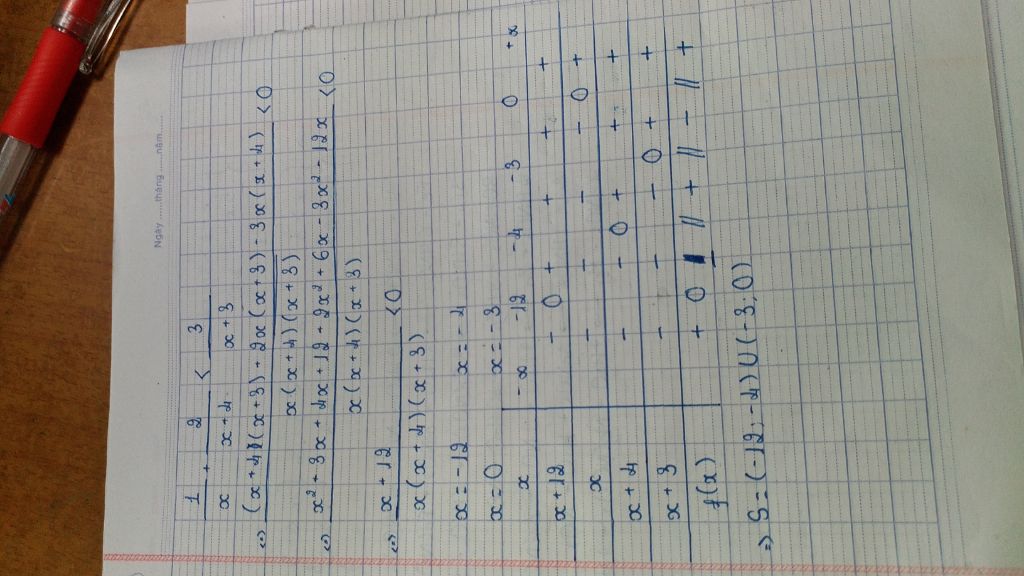 Ngày ......tháng ......năm......
1/x + 2/(x+4) < 3/(x+3)
<=> ((x+4)(x+3) + 2x(x+3) - 3x(x+4))/(x(x+4)(x+3)) <0
<=> (x² + 3x + 4x + 12 + 2x² + 6x - 3x² - 12x)/(x(x+4)(x+3)) <0
<=> (x+12)/(x(x+4)(x+3)) <0
x = -12 x = -4
x = 0 x = -3
x -∞ -12 -4 -3 0 +∞
x+12 - 0 + + + +
x - - - - 0 +
x+4 - - 0 + + +
x+3 - - - 0 + +
f(x) + 0 - || + || - || +
=> S = (-12; -4) ∪ (-3; 0)